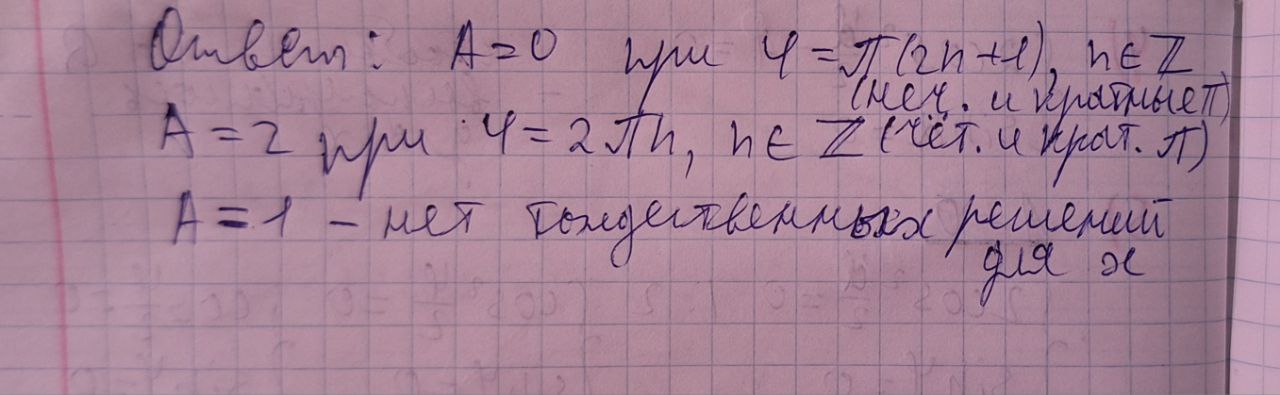 Ответ: A=0 при φ=π(2n+1), n∈ℤ
(неч. и кратные π)
A=2 при φ=2πn, n∈ℤ (чёт. и крат. π)
A=1 – нет тождественных решений
для x